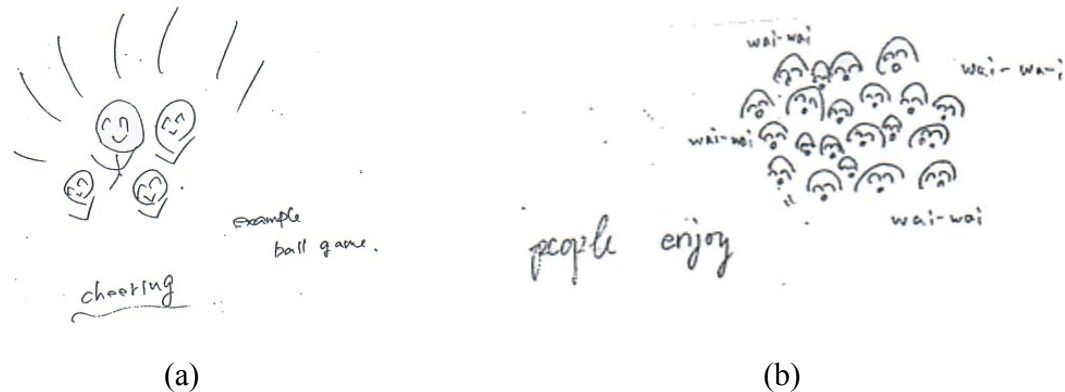 example
ball game.
cheering
(a)
wai-wai
wai-wa-i
wai-wai
wai-wai
people enjoy
(b)